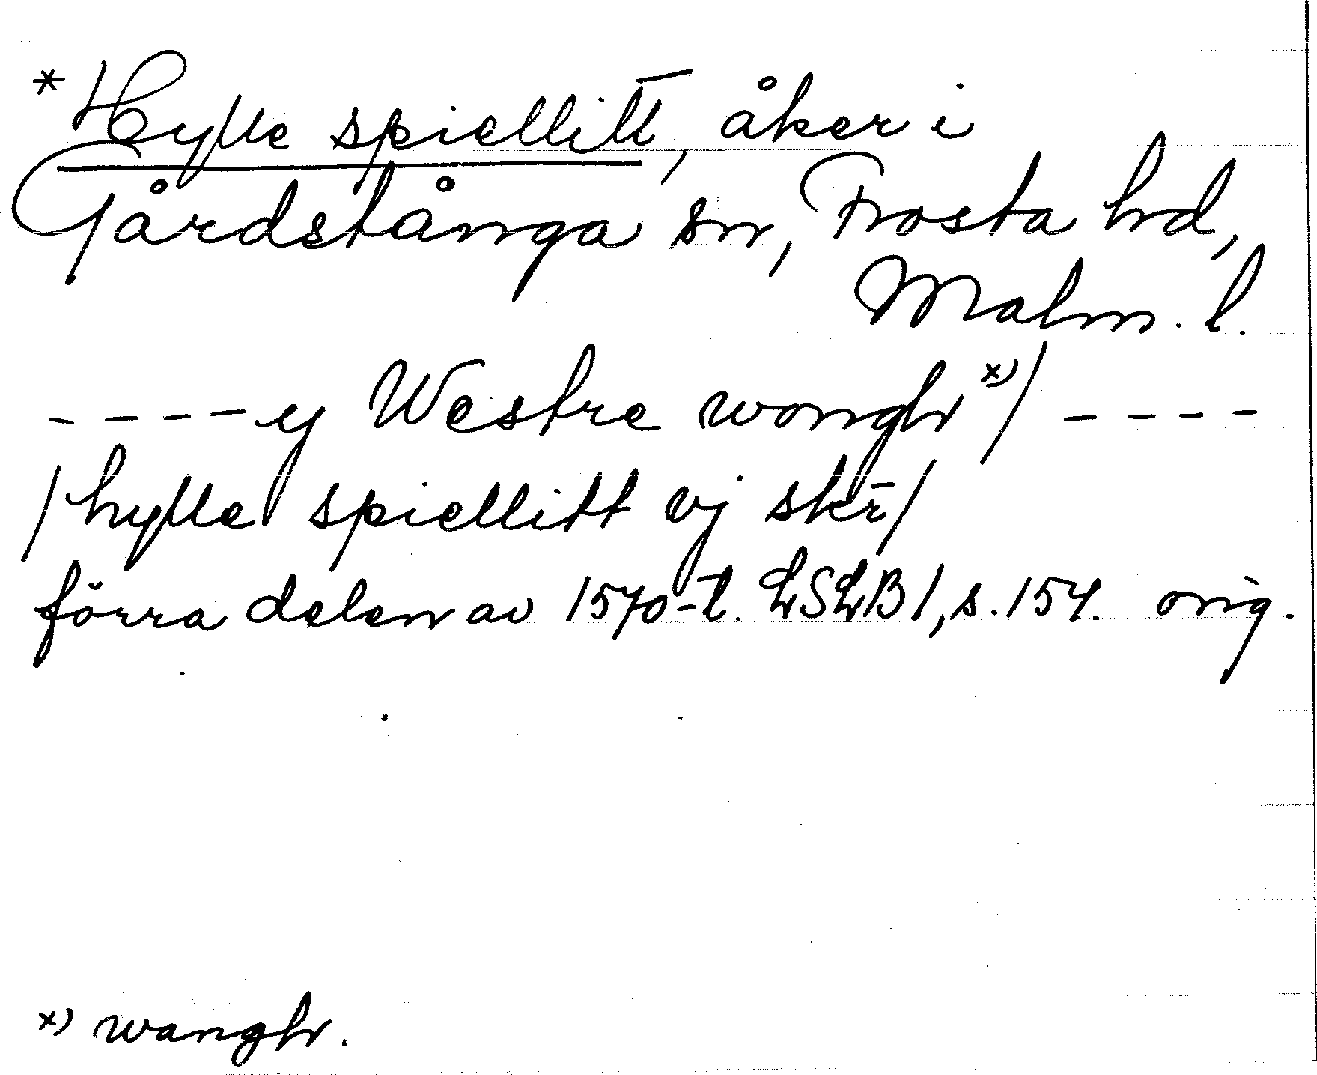 * Hylle spiellitt, åker i
Gårdstånga sn, Frosta hd,
Malm. l.
- - - - ej Westre wongh *) / - - - -
/ hylle spiellitt vj skr̄ /
förra delen av 1570-t. LSLB 1, s. 154. orig.
*) wangh.